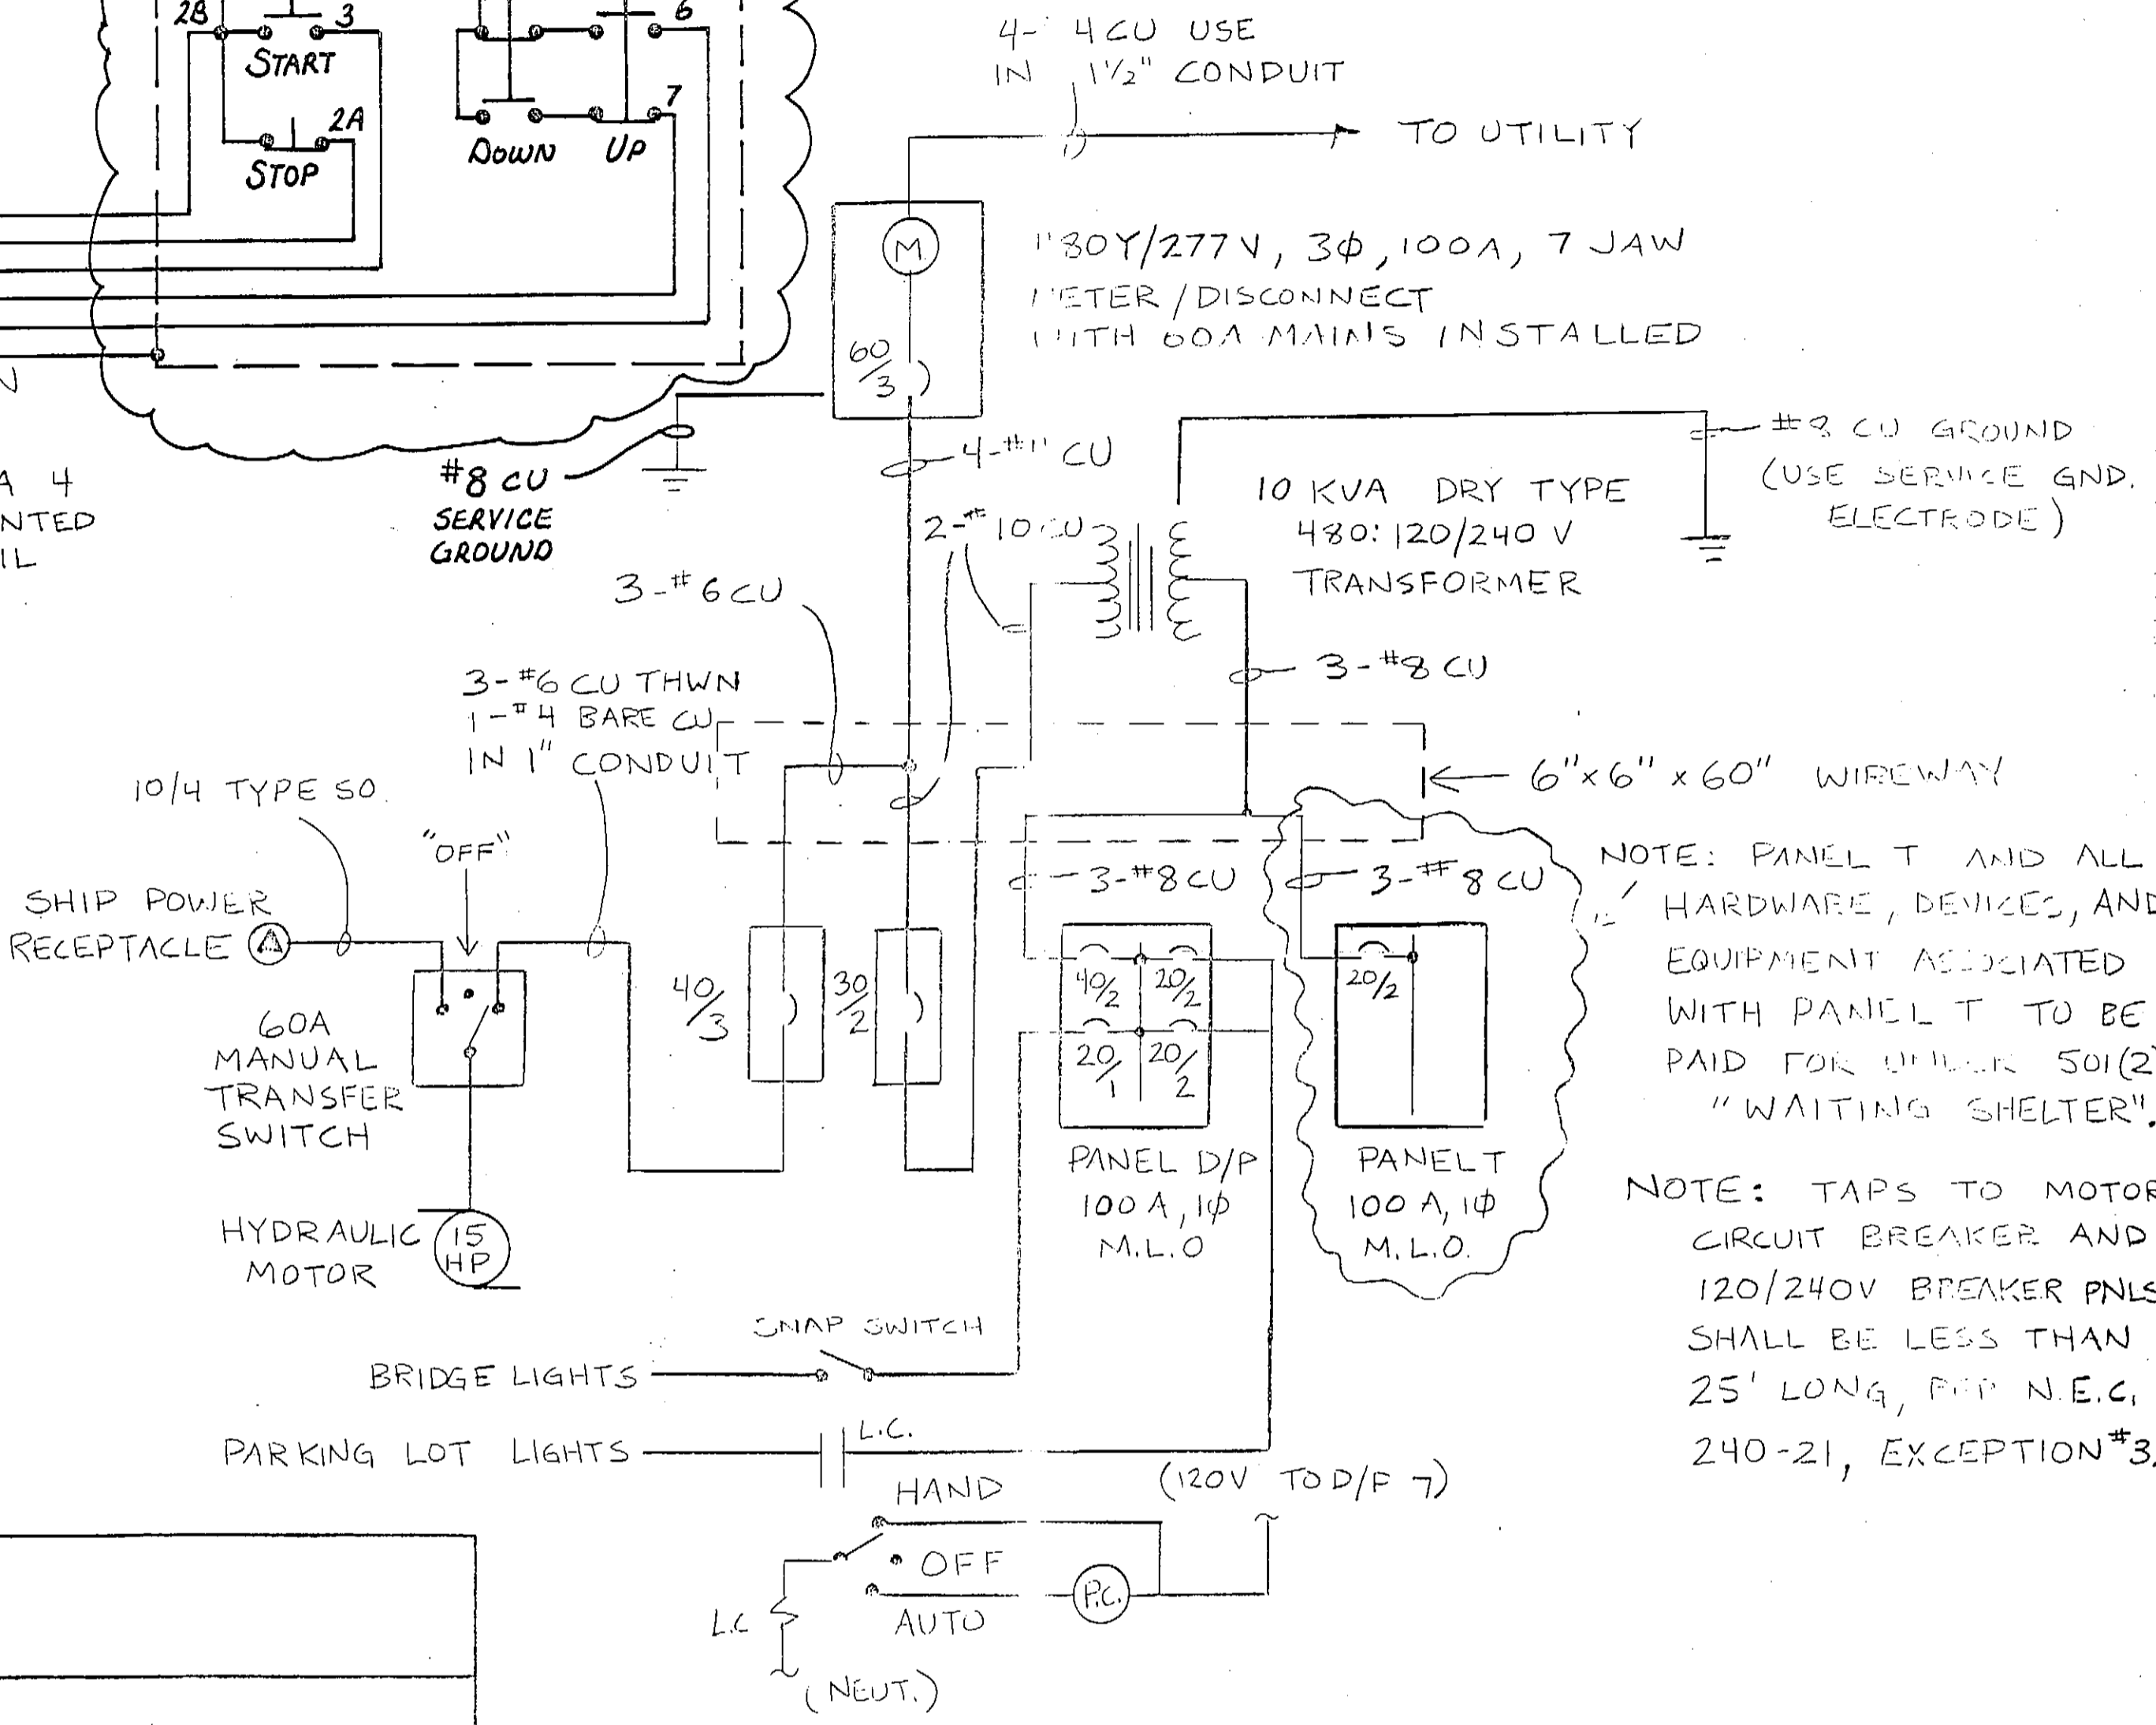 2B
3
START
2A
STOP
6
7
DOWN UP
4- 4 CU USE
IN 1½" CONDUIT
TO UTILITY
M
60/3
80Y/277V, 3Φ, 100A, 7 JAW
METER / DISCONNECT
WITH 60A MAINS INSTALLED
#8 CU
SERVICE
GROUND
A 4
NTED
IL
4-# CU
2-#10 CU
10 KVA DRY TYPE
480: 120/240 V
TRANSFORMER
#8 CU GROUND
(USE SERVICE GND.
ELECTRODE)
3-#6 CU
3-#8 CU
3-#6 CU THWN
1-#4 BARE CU
IN 1" CONDUIT
6"x6"x60" WIREWAY
10/4 TYPE SO.
"OFF"
SHIP POWER
RECEPTACLE
60A
MANUAL
TRANSFER
SWITCH
HYDRAULIC
MOTOR
15
HP
40/3
30/2
3-#8 CU
3-#8 CU
40/2 20/2
20/1 20/2
20/2
PANEL D/P
100 A, 1Φ
M.L.O
PANEL T
100 A, 1Φ
M.L.O.
NOTE: PANEL T AND ALL
HARDWARE, DEVICES, AND
EQUIPMENT ASSOCIATED
WITH PANEL T TO BE
PAID FOR UNDER 501(2)
"WAITING SHELTER".
NOTE: TAPS TO MOTOR
CIRCUIT BREAKER AND
120/240V BREAKER PNLS
SHALL BE LESS THAN
25' LONG, PER N.E.C.
240-21, EXCEPTION #3.
SNAP SWITCH
BRIDGE LIGHTS
PARKING LOT LIGHTS
L.C.
HAND
(120V TO D/P 7)
OFF
P.C.
AUTO
L.C
(NEUT.)